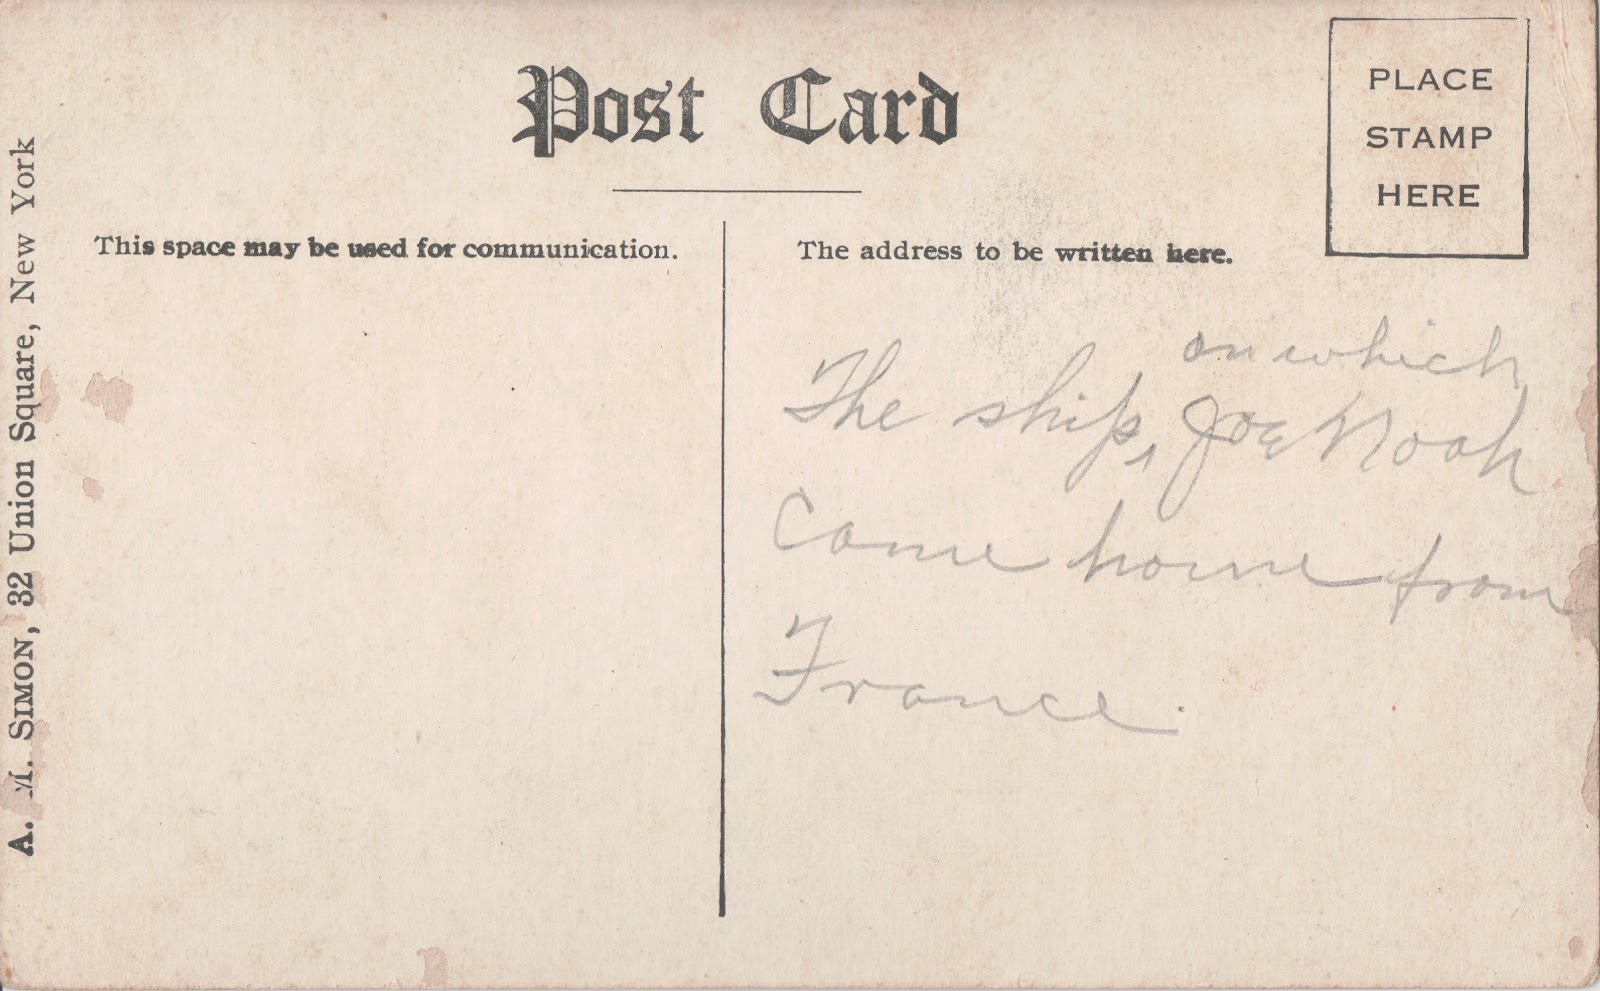 Post Card
PLACE
STAMP
HERE
This space may be used for communication.
The address to be written here.
on which
The ship, Joe Noah
came home from
France.
A. M. SIMON, 32 Union Square, New York